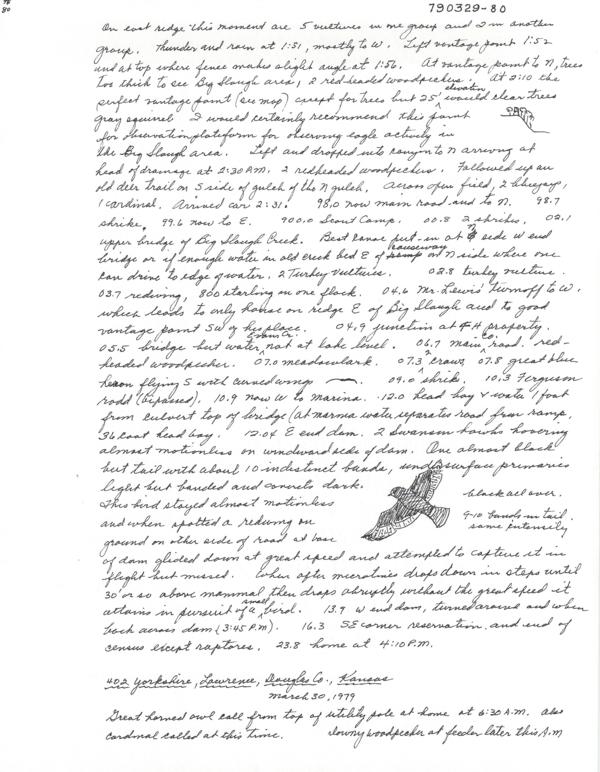 78
80
790329-80
On east ridge this moment are 5 vultures in one group and 2 in another
group. Thunder and rain at 1:51, mostly to W. Left vantage point 1:52
and at top where fence makes slight angle at 1:56. At vantage point to N, trees
too thick to see Big Slough area, 2 red-headed woodpeckers. At 2:10 the
perfect vantage point (see map) except for trees but 25' elevation would clear trees
gray squirrel I would certainly recommend this point
for observation plateform for observing eagle activity in
the Big Slough area. Left and dropped into canyon to N arriving at
head of drainage at 2:30 A.M. 2 redheaded woodpeckers. Followed up an
old deer trail on S side of gulch of the N gulch, across open field, 2 bluejays,
1 cardinal. Arrived car 2:31. 98.0 now main road and to N. 98.7
shrike. 99.6 now to E. 900.0 Scout Camp. 00.8 2 shrikes. 02.1
upper bridge of Big Slough Creek. Best canoe put-in at N side W end
bridge or if enough water in old creek bed E of causeway on N side where one
can drive to edge of water. 2 Turkey Vultures. 02.8 turkey vulture.
03.7 redwing, 800 starling in one flock. 04.6 Mr. Lewis' turnoff to W.
which leads to only house on ridge E of Big Slough and to good
vantage point SW of his place. 04.9 junction at property.
05.5 bridge but water not at lake level. 06.7 main Co. road. red-
headed woodpecker. 07.0 meadowlark. 07.3 2 crows, 07.8 great blue
heron flying S with curved wing 09.0 shrike. 10.3 Ferguson
rodd (bipassed). 10.9 now W to marina. 12.0 head bay & water 1 foot
from culvert top of bridge (at marina water separates road from ramp.
36 coot head bay. 12.04 E end dam. 2 Swanson hawks hovering
almost motionless on windward side of dam. One almost black
but tail with about 10 indistinct bands, undersurface primaries
light but banded and coverts dark. black all over.
This bird stayed almost motionless 9-10 bands in tail
and when spotted a redwing on same intensity
ground on other side of road at base
of dam glided down at great speed and attempted to capture it in
flight but missed. When after microtines drops down in steps until
30' or so above mammal then drops abruptly without the great speed it
attains in pursuit of a small bird. 13.9 W end dam, turned around and when
back across dam (3:45 P.M). 16.3 SE corner reservation and end of
census except raptores. 23.8 home at 4:10 P.M.
402 Yorkshire, Lawrence, Douglas Co., Kansas
March 30, 1979
Great horned owl call from top of utility pole at home at 6:30 A.M. also
cardinal called at this time. downy woodpecker at feeder later this A.M